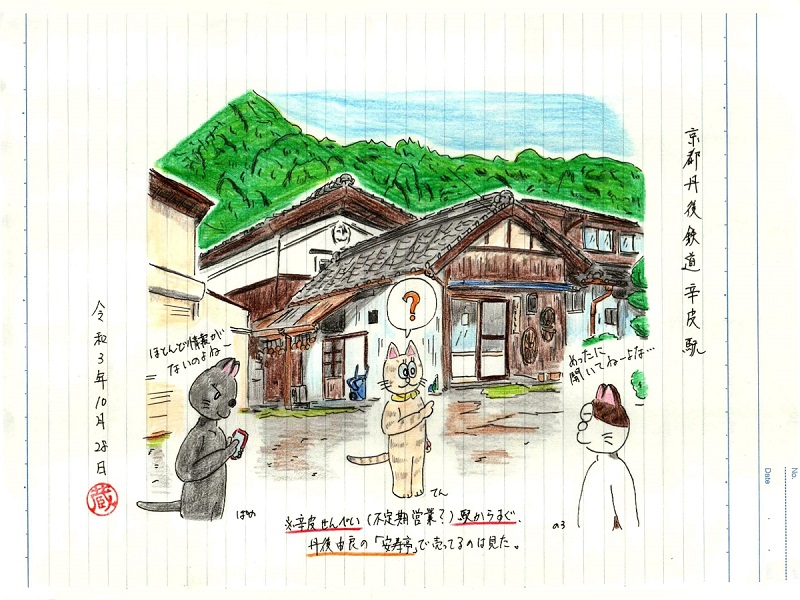 No.
Date
京都丹後鉄道辛皮駅
?
ほとんど情報が
ないのよね〜
めったに
開いてねーよな…
令和3年10月28日
蔵
ぱめ
てん
のろ
※辛皮せんべい(不定期営業?)駅からすぐ、
丹後由良の「安寿亭」で売ってるのは見た。